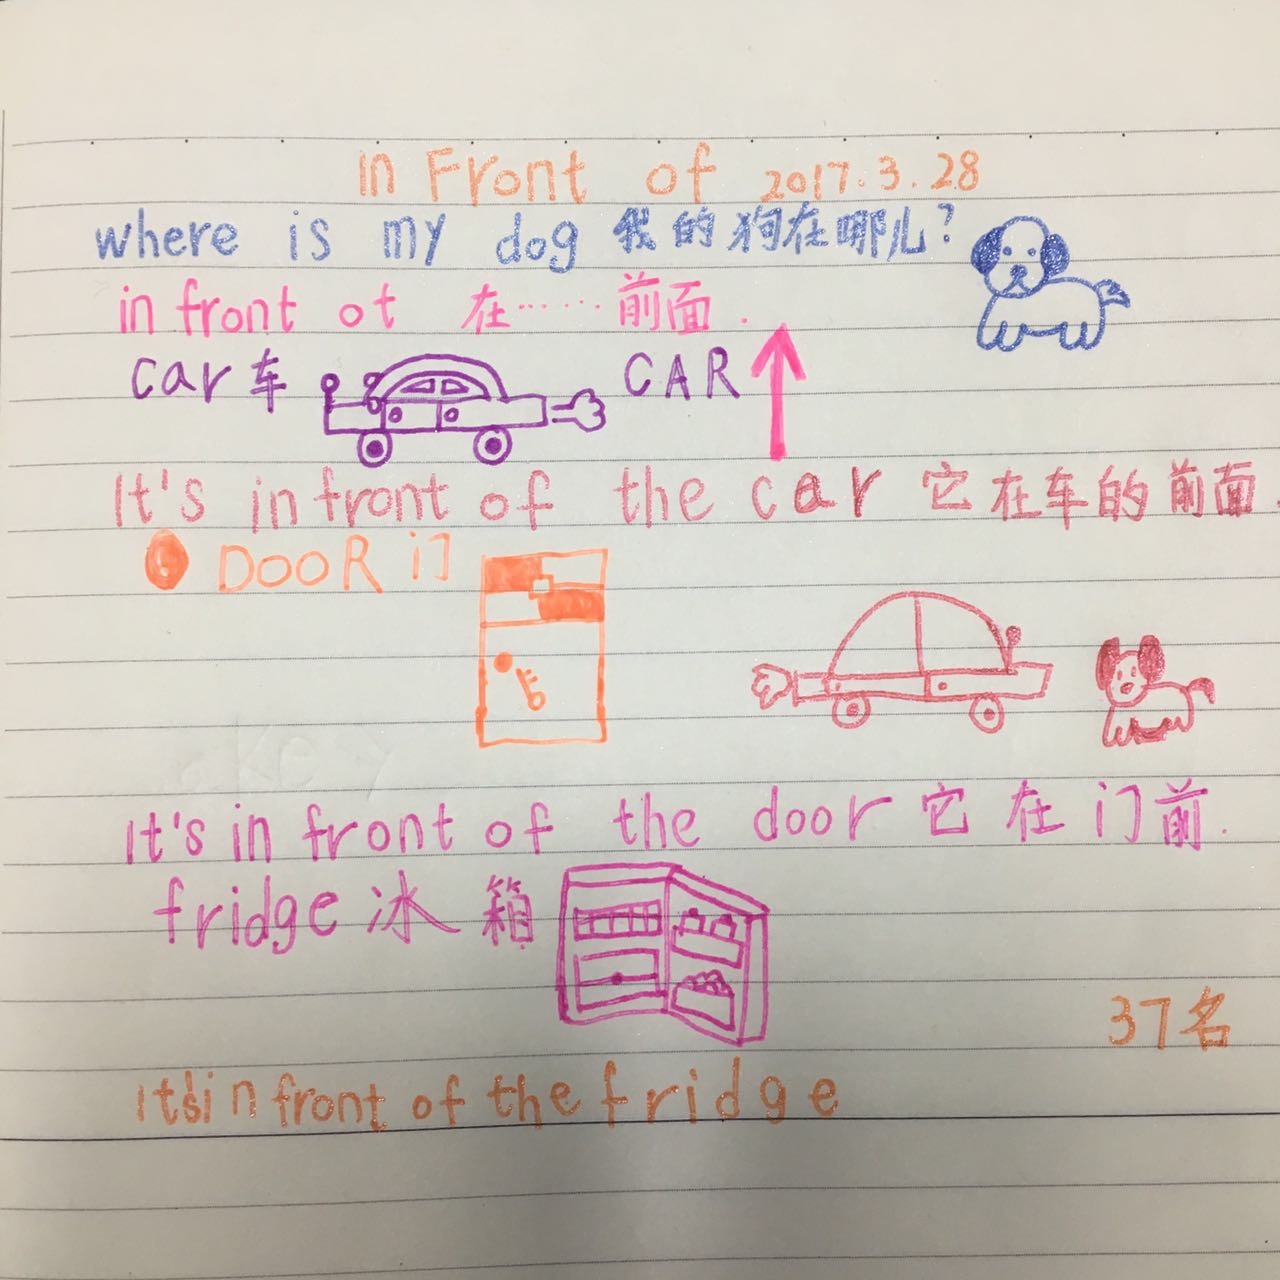 In Front of 2017.3.28
where is my dog 我的狗在哪儿?
in front ot 在……前面.
car 车 CAR
It's in front of the car 它在车的前面.
DOOR 门
It's in front of the door 它在门前.
fridge 冰箱
37名
It's in front of the fridge